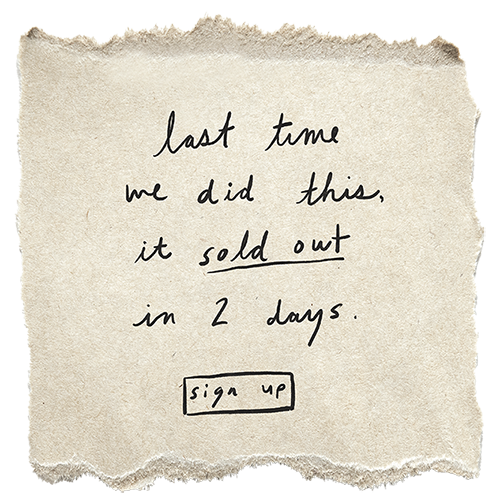 last time
we did this,
it sold out
in 2 days.
sign up